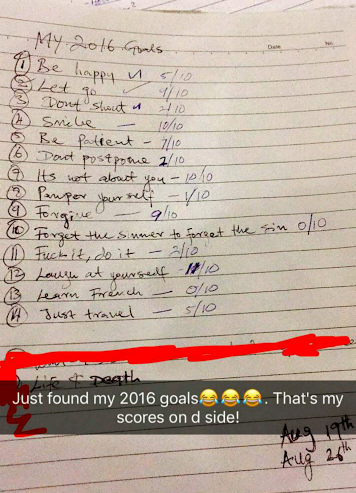 MY 2016 Goals
Date
No
① Be happy ✓ 5/10
② Let go ✓ 4/10
③ Dont shout
④ Smile — 10/10
⑤ Be patient - 7/10
⑥ Dont postpone 2/10
⑦ Its not about you - 10/10
⑧ Pamper yourself - 1/10
⑨ Forgive — 9/10
⑩ Forget the sinner to forget the sin 0/10
⑪ Fuck it, do it — 2/10
⑫ Laugh at yourself - /10
⑬ Learn French — 0/10
⑭ Just travel — 5/10
Life & Death
Just found my 2016 goals😂😂😂. That's my
scores on d side!
Aug 19th
Aug 26th